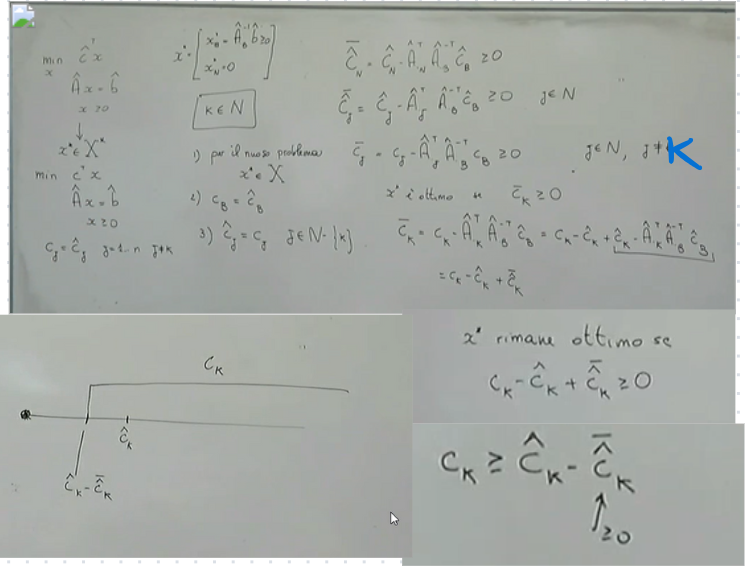 min ĉᵀx
x
Âx = b̂
x ≥ 0
↓
x* ∈ X*
min cᵀx
Âx = b̂
x ≥ 0
c_j = ĉ_j j=1...n j≠k
x* = [ x*_B = Â_B⁻¹ b̂ ≥ 0
x*_N = 0 ]
K ∈ N
1) per il nuovo problema
x* ∈ X
2) c_B = ĉ_B
3) ĉ_j = c_j j ∈ N - {k}
c̄̂_N = ĉ_N - Â_Nᵀ Â_B⁻ᵀ ĉ_B ≥ 0
c̄̂_j = ĉ_j - Â_jᵀ Â_B⁻ᵀ ĉ_B ≥ 0 j ∈ N
c̄_j = c_j - Â_jᵀ Â_B⁻ᵀ c_B ≥ 0 j ∈ N, j ≠ K
x* è ottimo se c̄_K ≥ 0
c̄_K = c_K - Â_Kᵀ Â_B⁻ᵀ ĉ_B = c_K - ĉ_K + ĉ_K - Â_Kᵀ Â_B⁻ᵀ ĉ_B
= c_K - ĉ_K + c̄̂_K
c_K
ĉ_K
ĉ_K - c̄̂_K
x* rimane ottimo se
c_K - ĉ_K + c̄̂_K ≥ 0
c_K ≥ ĉ_K - c̄̂_K
↑
≥0